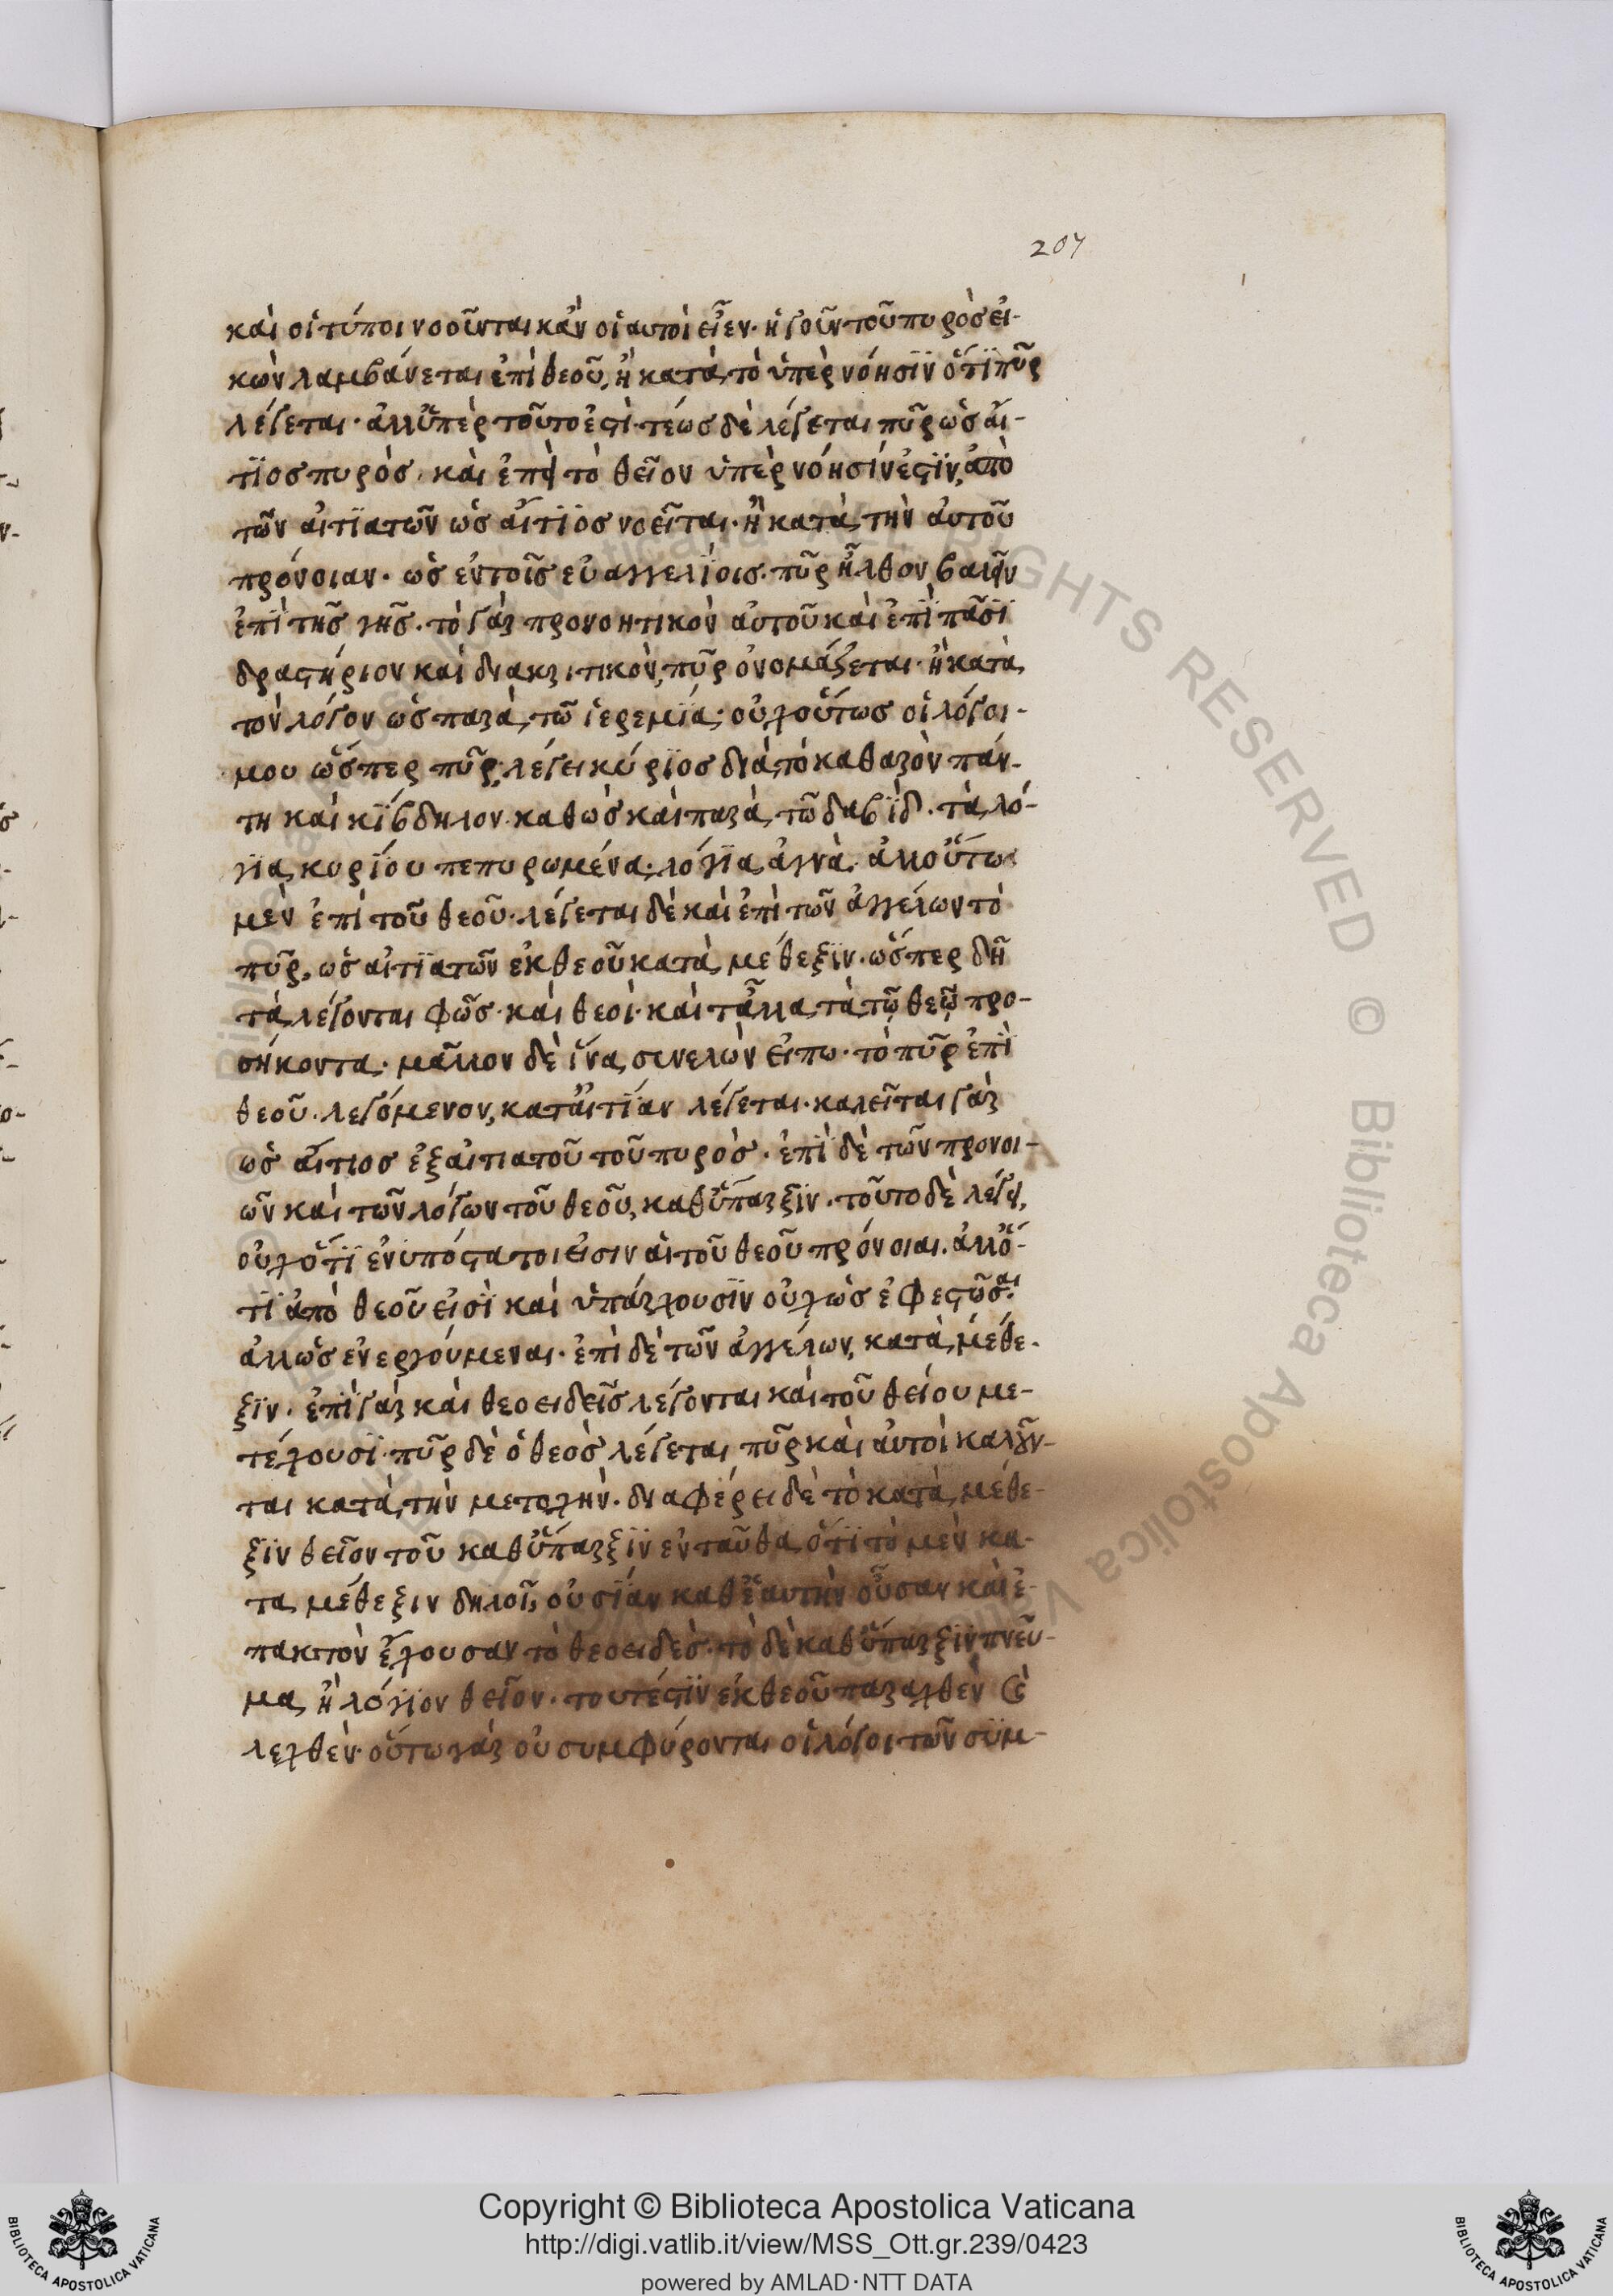 207
καὶ οἱ τύποι νοοῦνται κἂν οἱ αυτοὶ εἶεν· ἡ γοῦν τοῦ πυρὸς εἰ-
κὼν λαμβάνεται ἐπὶ θεοῦ, ἢ κατὰ τὸ ὑπὲρ νόησϊν ὅτϊ πῦρ
λέγεται· ἀλλ' ὑπὲρ τοῦτο ἐστὶ· τέως δὲ λέγεται πῦρ ὡς αἴ-
τϊος πυρὸς· καὶ ἐπεὶ τὸ θεῖον ὑπὲρ νόησίν ἐστϊν, ἀπὸ
τῶν αἰτϊατῶν ὡς αἴτϊος νοεῖται· ἢ κατὰ τὴν ἀυτοῦ
πρόνοιαν· ὡς ἐν τοῖς εὐαγγελίοις· πῦρ ἦλθον βαλεῖν
ἐπὶ τῆς γῆς· τὸ γὰρ προνοητικὸν ἀυτοῦ καὶ ἐπὶ πᾶσϊ
δραστήριον καὶ διακριτικὸν, πῦρ ὀνομάζεται· ἢ κατὰ
τὸν λόγον ὡς παρὰ τῶ ἱερεμϊα; οὐχ οὕτως οἱ λόγοι-
μου ὥσπερ πῦρ; λέγει κύρϊος διὰ τὸ καθαρὸν πάν-
τη καὶ κϊβδηλον· καθὼς καὶ παρὰ τῶ δαβϊδ· τὰ λό-
γϊα κυρϊου πεπυρωμένα· λόγϊα ἁγνὰ· ἀλλ' οὕτως
μὲν ἐπὶ τοῦ θεοῦ· λέγεται δὲ καὶ ἐπὶ τῶν ἀγγέλων τὸ
πῦρ, ὡς αἰτϊατῶν ἐκ θεοῦ κατὰ μέθεξϊν· ὥσπερ δὴ
τὰ λέγονται φῶς· καὶ θεοὶ· καὶ τἆλλα τὰ τῷ θεῷ προ-
σήκοντα· μᾶλλον δὲ ἵνα συνελὼν εἴπω· τὸ πῦρ ἐπὶ
θεοῦ· λεγόμενον, κατ' αἰτϊαν λέγεται· καλεῖται γὰρ
ὡς αἴτιος ἐξ αἰτιατοῦ τοῦ πυρὸς· ἐπὶ δὲ τῶν προνοι-
ῶν καὶ τῶν λόγων τοῦ θεοῦ, καθ' ὕπαρξϊν· τοῦτο δὲ λέγει,
οὐχ ὅτϊ ἐνυπόστατοι εἰσιν αἱ τοῦ θεοῦ πρόνοιαι· ἀλλ' ὅ-
τϊ ἀπὸ θεοῦ εἰσϊ καὶ ὑπάρχουσϊν οὐχ ὡς ἐφεστῶσαι
ἀλλ' ὡς ἐνεργούμεναι· ἐπὶ δὲ τῶν ἀγγέλων, κατὰ μέθε-
ξϊν· ἐπεὶ γὰρ καὶ θεοειδεῖς λέγονται καὶ τοῦ θείου με-
τέχουσϊ· πῦρ δὲ ὁ θεὸς λέγεται πῦρ καὶ ἀυτοὶ καλοῦν-
ται κατὰ τὴν μετοχὴν· διαφέρει δὲ τὸ κατὰ μέθε-
ξϊν θεῖον τοῦ καθ' ὕπαρξϊν ἐνταῦθα, ὅτϊ τὸ μὲν κα-
τα μέθεξιν δηλοῖ, οὐσϊαν καθ' ἑαυτὴν οὖσαν καὶ ἐ-
πακτὸν ἔχουσαν τὸ θεοειδὲς· τὸ δὲ καθ' ὕπαρξϊν πνεῦ-
μα ἢ λόγϊον θεῖον· τουτέστϊν ἐκ θεοῦ παραχθὲν ἢ
λεχθὲν· οὕτω γὰρ οὐ συμφύρονται οἱ λόγοι τῶν συμ-
Copyright © Biblioteca Apostolica Vaticana
http://digi.vatlib.it/view/MSS_Ott.gr.239/0423
powered by AMLAD·NTT DATA
BIBLIOTECA APOSTOLICA VATICANA
BIBLIOTECA APOSTOLICA VATICANA